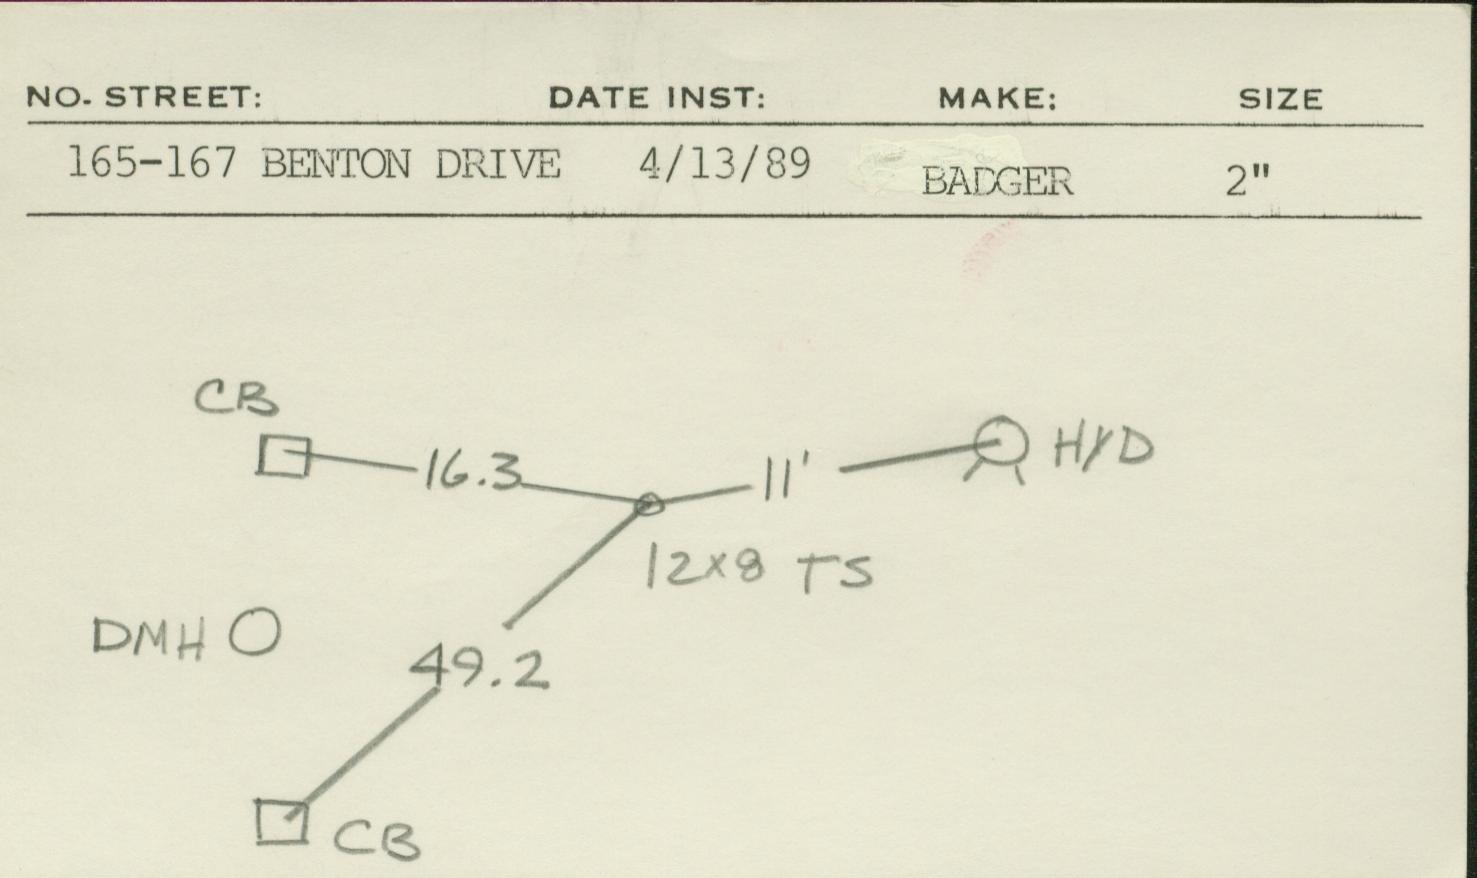 NO. STREET: DATE INST: MAKE: SIZE
165-167 BENTON DRIVE 4/13/89 BADGER 2"
CB
16.3 11' HYD
12x8 TS
DMH
49.2
CB